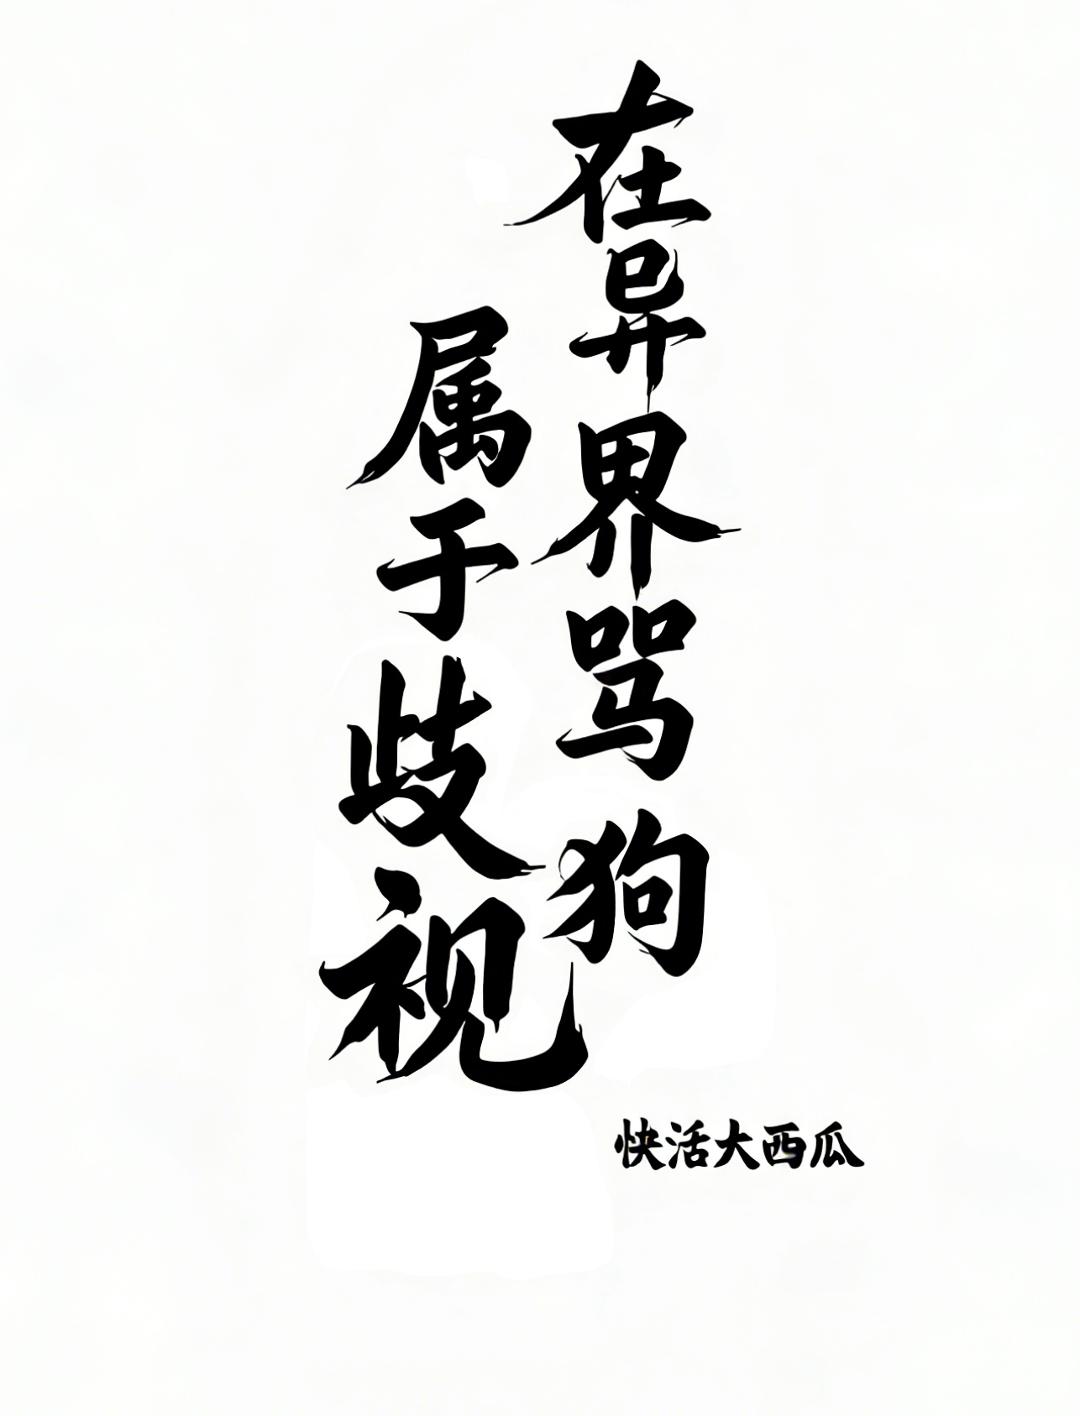 在异界骂狗
属于歧视
快活大西瓜